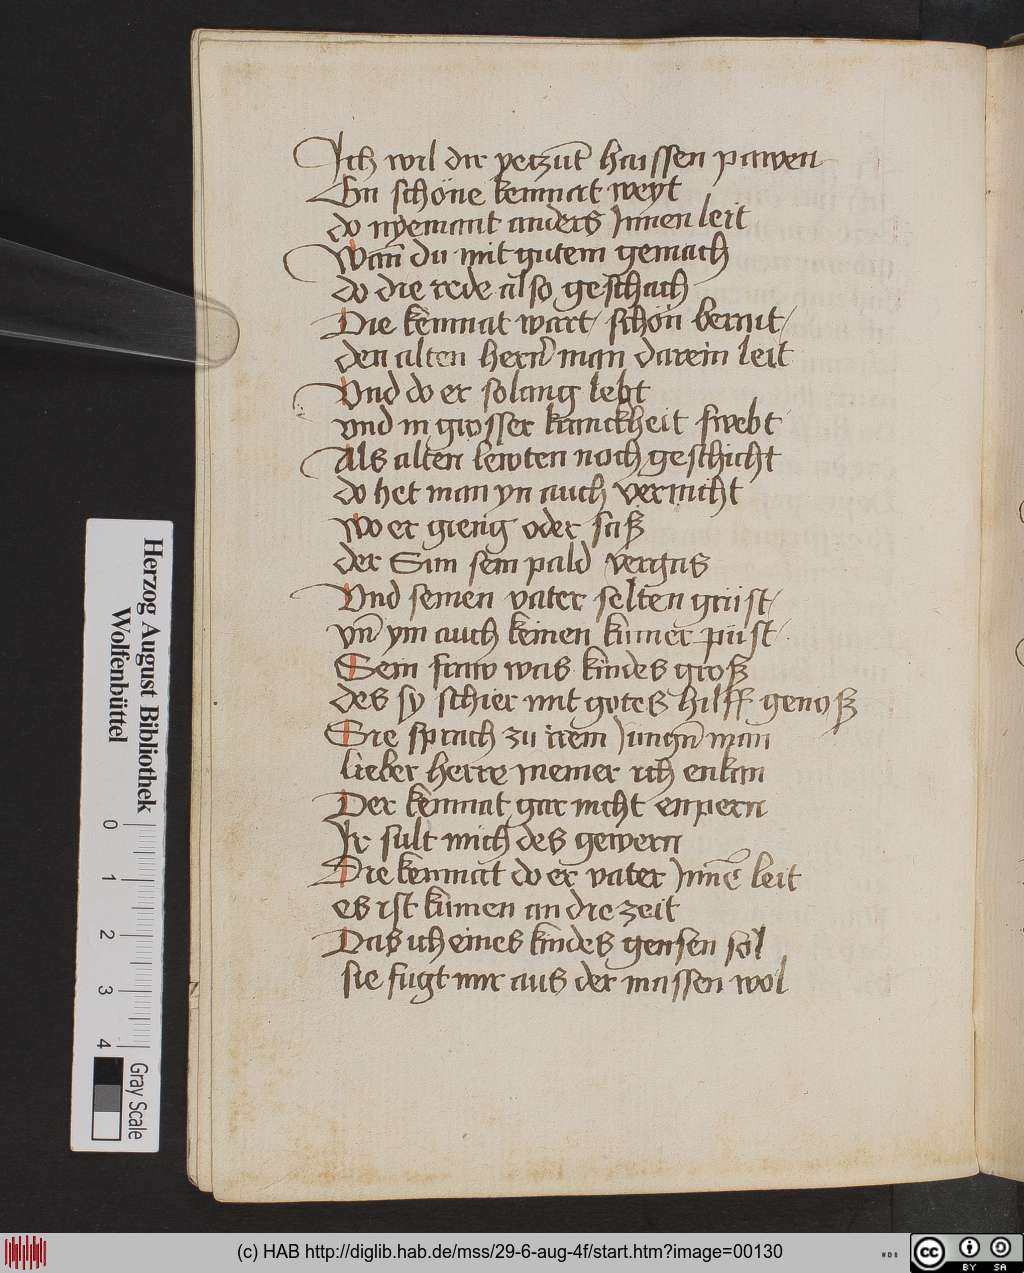 Ich wil dir yetzūt haissen pawen
Ein schöne kemnat weyt
do nyemant anders Jnnen leit
Wan̄ du mit gutem gemach
do die rede also geschach
Die kemnat wart schön berait
den alten hern̄ man darein leit
Vnd do er solang lebt
vnd in grosser kranckheit swebt
Als alten lewten noch geschicht
do het man yn auch vernicht
wo er gieng oder saß
der Sun sein pald vergas
Vnd seinen vater selten grüst
vn̄ ym auch keinen kumer püst
Sein fraw was kindes groß
des sy schier mit gotes hilff genoß
Sie sprach zu irem Jungn̄ man
lieber herre meiner ich enkan
Der kemnat gar nicht enpern
Ir sult mich des gewern
Die kemnat do er vater Jnnē leit
es ist kumen an die zeit
Das ich eines kindes gensen sol
sie fugt mir aus der massen wol
Herzog August Bibliothek
Wolfenbüttel
0 1 2 3 4
Gray Scale
(c) HAB http://diglib.hab.de/mss/29-6-aug-4f/start.htm?image=00130
WDB
cc BY SA